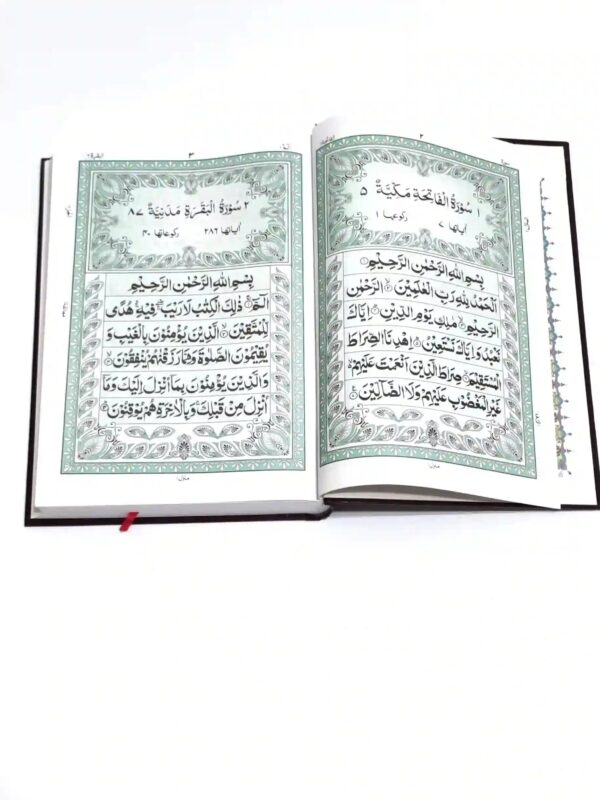 ٢
١ سُوْرَةُ الْفَاتِحَةِ مَكِّيَّةٌ ٥
اٰياتها ٧ ركوعها ١
بِسْمِ اللّٰهِ الرَّحْمٰنِ الرَّحِيْمِ
اَلْحَمْدُ لِلّٰهِ رَبِّ الْعٰلَمِيْنَ ۙ الرَّحْمٰنِ
الرَّحِيْمِ ۙ مٰلِكِ يَوْمِ الدِّيْنِ ۭ اِيَّاكَ
نَعْبُدُ وَاِيَّاكَ نَسْتَعِيْنُ ۭ اِهْدِنَا الصِّرَاطَ
الْمُسْتَقِيْمَ ۙ صِرَاطَ الَّذِيْنَ اَنْعَمْتَ عَلَيْهِمْ
غَيْرِ الْمَغْضُوْبِ عَلَيْهِمْ وَلَا الضَّآلِّيْنَ
منزل ١
البقرة ٢
٣
الٓمّٓ ١
٢ سُوْرَةُ الْبَقَرَةِ مَدَنِيَّةٌ ٨٧
اٰياتها ٢٨٦ ركوعاتها ٤٠
بِسْمِ اللّٰهِ الرَّحْمٰنِ الرَّحِيْمِ
الٓمّٓ ۚ ذٰلِكَ الْكِتٰبُ لَا رَيْبَ ۛ فِيْهِ ۛ هُدًى
لِّلْمُتَّقِيْنَ ۙ الَّذِيْنَ يُؤْمِنُوْنَ بِالْغَيْبِ وَ
يُقِيْمُوْنَ الصَّلٰوةَ وَمِمَّا رَزَقْنٰهُمْ يُنْفِقُوْنَ ۙ
وَالَّذِيْنَ يُؤْمِنُوْنَ بِمَآ اُنْزِلَ اِلَيْكَ وَمَآ
اُنْزِلَ مِنْ قَبْلِكَ ۚ وَبِالْاٰخِرَةِ هُمْ يُوْقِنُوْنَ
منزل ١